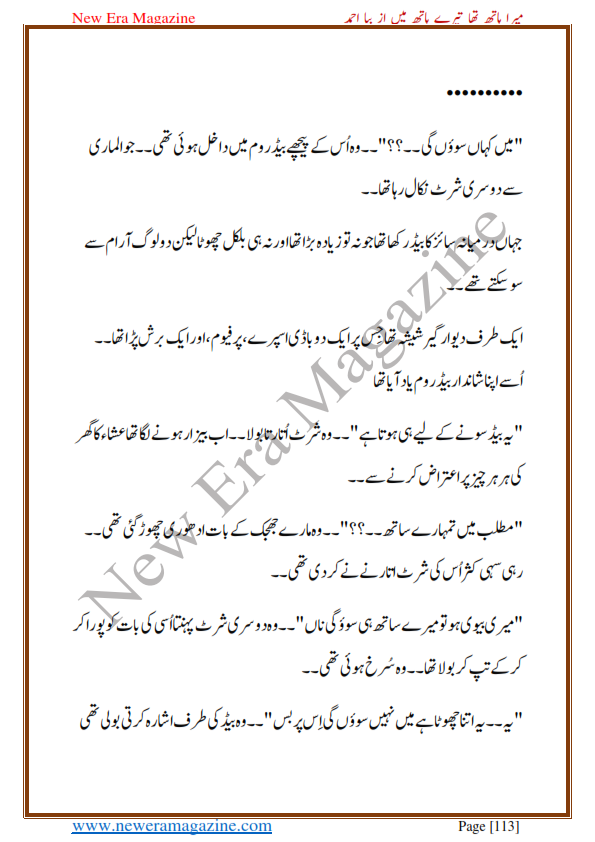 New Era Magazine
میرا ہاتھ تھا تیرے ہاتھ میں از ہبا احمد
••••••••••
"میں کہاں سوؤں گی۔۔؟؟"۔۔وہ اُس کے پیچھے بیڈ روم میں داخل ہوئی تھی۔۔جو الماری
سے دوسری شرٹ نکال رہا تھا۔۔
جہاں درمیانہ سائز کا بیڈ رکھا تھا جو نہ تو زیادہ بڑا تھا اور نہ ہی بلکل چھوٹا لیکن دو لوگ آرام سے
سو سکتے تھے۔۔
ایک طرف دیوار گیر شیشہ تھا جس پر ایک دو باڈی اسپرے، پرفیوم، اور ایک برش پڑا تھا۔۔
اُسے اپنا شاندار بیڈ روم یاد آیا تھا
"یہ بیڈ سونے کے لیے ہی ہوتا ہے"۔۔وہ شرٹ اُتارتا بولا۔۔اب بیزار ہونے لگا تھا عشاء کا گھر
کی ہر ہر چیز پر اعتراض کرنے سے۔۔
"مطلب میں تمہارے ساتھ۔۔؟؟"۔۔وہ مارے جھجک کے بات ادھوری چھوڑ گئی تھی۔۔
رہی سہی کثر اُس کی شرٹ اتارنے نے کر دی تھی۔۔
"میری بیوی ہو تو میرے ساتھ ہی سوؤ گی ناں"۔۔وہ دوسری شرٹ پہنتا اُسی کی بات کو پورا کر
کر کے تپ کر بولا تھا۔۔وہ سُرخ ہوئی تھی۔۔
"یہ۔۔یہ اتنا چھوٹا ہے میں نہیں سوؤں گی اِس پر بس"۔۔وہ بیڈ کی طرف اشارہ کرتی بولی تھی
New Era Magazine
www.neweramagazine.com
Page [113]